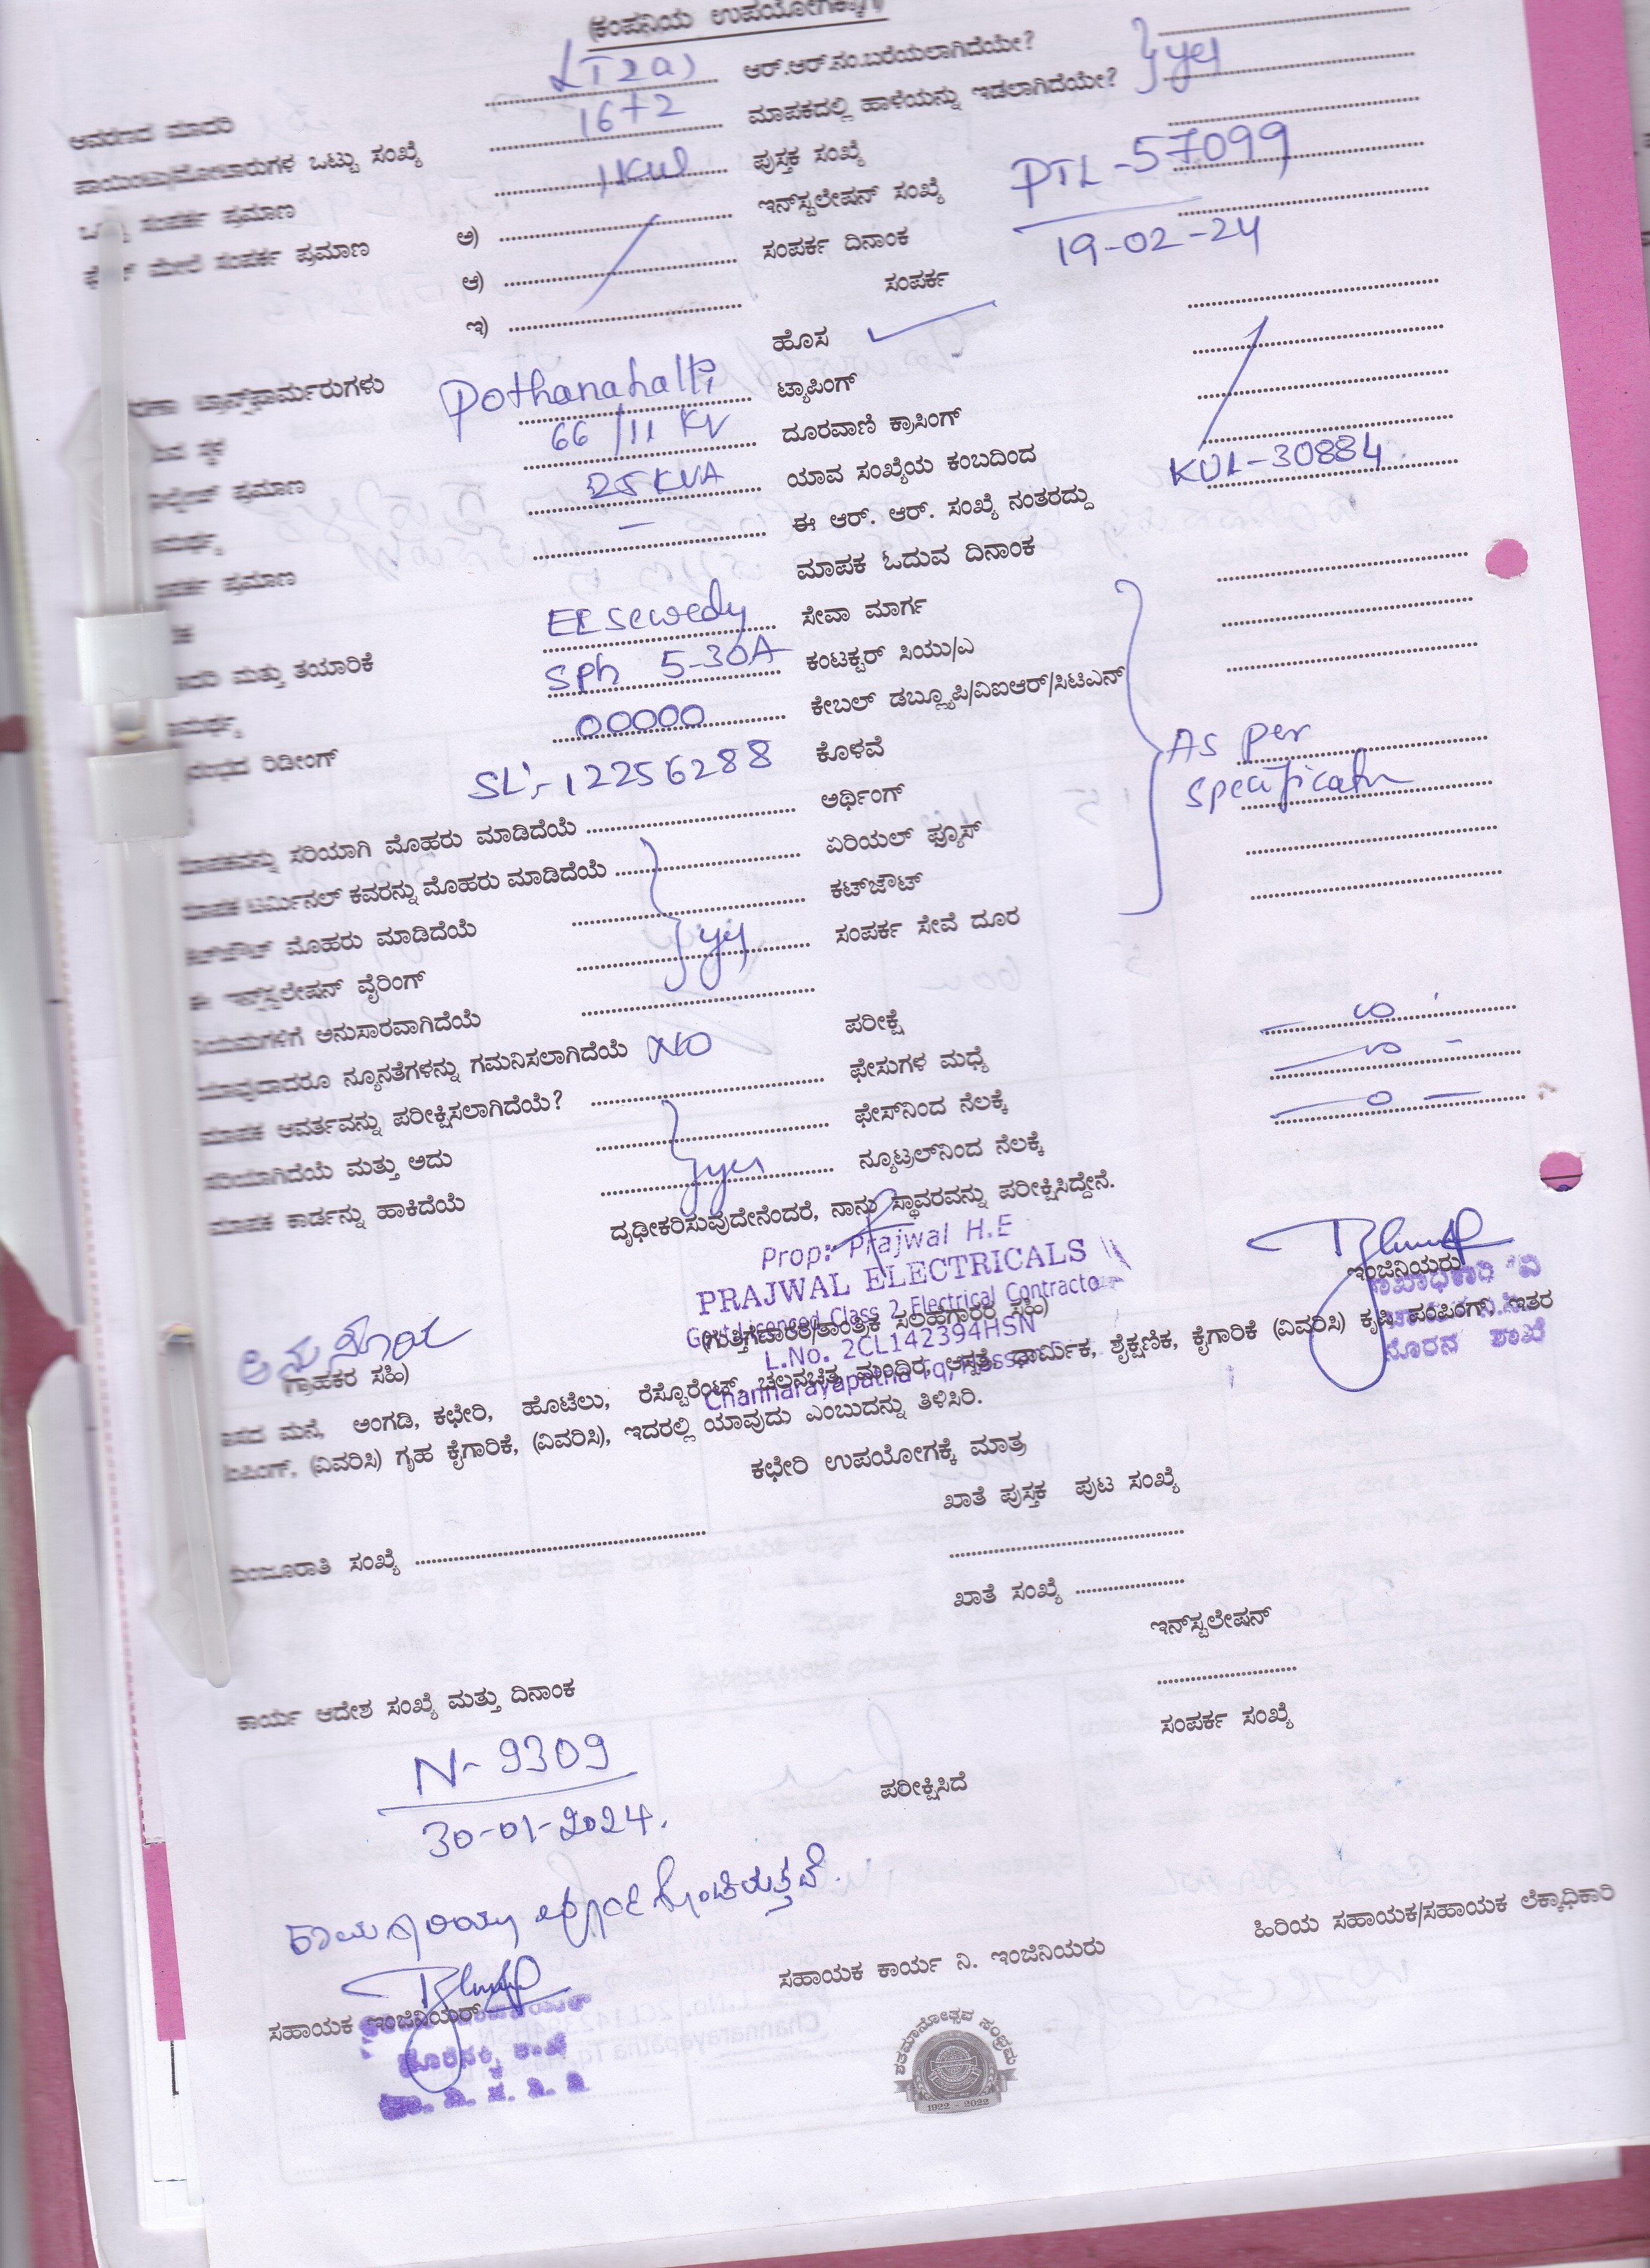 (ಕಂಪನಿಯ ಉಪಯೋಗಕ್ಕಾಗಿ)
LT2a) ಆರ್.ಆರ್.ನಂ.ಬರೆಯಲಾಗಿದೆಯೇ?
ಆವರಣದ ಮಾದರಿ 16+2 ಮಾಪಕದಲ್ಲಿ ಹಾಳೆಯನ್ನು ಇಡಲಾಗಿದೆಯೇ? } yes
ಪಾಯಿಂಟು/ಮೋಟಾರುಗಳ ಒಟ್ಟು ಸಂಖ್ಯೆ 1KW ಪುಸ್ತಕ ಸಂಖ್ಯೆ
ಸಂಪರ್ಕ ಪ್ರಮಾಣ ಅ) ಇನ್‌ಸ್ಟಲೇಷನ್ ಸಂಖ್ಯೆ PTL-57099
ಮೇಲೆ ಸಂಪರ್ಕ ಪ್ರಮಾಣ ಆ) ಸಂಪರ್ಕ ದಿನಾಂಕ 19-02-24
ಇ) ಸಂಪರ್ಕ
ಹೊಸ
ಟ್ರಾನ್ಸ್‌ಫಾರ್ಮರುಗಳು Pothanahalli ಟ್ಯಾಪಿಂಗ್
ಸ್ಥಳ 66/11 KV ದೂರವಾಣಿ ಕ್ರಾಸಿಂಗ್
ಪ್ರಮಾಣ 25 KVA ಯಾವ ಸಂಖ್ಯೆಯ ಕಂಬದಿಂದ
- ಈ ಆರ್. ಆರ್. ಸಂಖ್ಯೆ ನಂತರದ್ದು KUL-30884
ಪ್ರಮಾಣ ಮಾಪಕ ಓದುವ ದಿನಾಂಕ
EL sewedy ಸೇವಾ ಮಾರ್ಗ
ಮತ್ತು ತಯಾರಿಕೆ Sph 5-30A ಕಂಟಕ್ಟರ್ ಸಿಯು/ಎ
00000 ಕೇಬಲ್ ಡಬ್ಲ್ಯೂಪಿ/ವಿಐಆರ್/ಸಿಟಿಎನ್
ರಿಡೀಂಗ್ SL:-12256288 ಕೊಳವೆ As per
ಮಾಪಕವನ್ನು ಸರಿಯಾಗಿ ಮೊಹರು ಮಾಡಿದೆಯೆ ಅರ್ಥಿಂಗ್ specificatn
ಮಾಪಕ ಟರ್ಮಿನಲ್ ಕವರನ್ನು ಮೊಹರು ಮಾಡಿದೆಯೆ ಏರಿಯಲ್ ಫ್ಯೂಸ್
ಕಟ್‌ಔಟ್ ಮೊಹರು ಮಾಡಿದೆಯೆ ಕಟ್‌ಔಟ್
ಈ ಇನ್‌ಸ್ಟಲೇಷನ್ ವೈರಿಂಗ್ } yes ಸಂಪರ್ಕ ಸೇವೆ ದೂರ
ನಿಯಮಗಳಿಗೆ ಅನುಸಾರವಾಗಿದೆಯೆ
ಯಾವುದಾದರೂ ನ್ಯೂನತೆಗಳನ್ನು ಗಮನಿಸಲಾಗಿದೆಯೆ NO ಪರೀಕ್ಷೆ
ಮಾಪಕ ಆವರ್ತವನ್ನು ಪರೀಕ್ಷಿಸಲಾಗಿದೆಯೆ? ಫೇಸುಗಳ ಮಧ್ಯೆ
ಸರಿಯಾಗಿದೆಯೆ ಮತ್ತು ಅದು ಫೇಸ್‌ನಿಂದ ನೆಲಕ್ಕೆ
ಮಾಪಕ ಕಾರ್ಡನ್ನು ಹಾಕಿದೆಯೆ } yes ನ್ಯೂಟ್ರಲ್‌ನಿಂದ ನೆಲಕ್ಕೆ
ದೃಢೀಕರಿಸುವುದೇನೆಂದರೆ, ನಾನು ಸ್ಥಾವರವನ್ನು ಪರೀಕ್ಷಿಸಿದ್ದೇನೆ.
Prop: Prajwal H.E
PRAJWAL ELECTRICALS
Govt Licenced Class 2 Electrical Contractor
L.No. 2CL142394HSN
Channarayapatna Tq, Hassan
ಇಂಜಿನಿಯರು
(ಗುತ್ತಿಗೆದಾರರ/ತಾಂತ್ರಿಕ ಸಲಹೆಗಾರರ ಸಹಿ)
(ಗ್ರಾಹಕರ ಸಹಿ)
ಮನೆ, ಅಂಗಡಿ, ಕಛೇರಿ, ಹೊಟೆಲು, ರೆಸ್ಟೊರೆಂಟ್, ಚಲನಚಿತ್ರ ಮಂದಿರ, ಆಸ್ಪತ್ರೆ, ಧಾರ್ಮಿಕ, ಶೈಕ್ಷಣಿಕ, ಕೈಗಾರಿಕೆ (ವಿವರಿಸಿ) ಕೃಷಿ ಪಂಪಿಂಗ್, ಇತರ
ಪಂಪಿಂಗ್, (ವಿವರಿಸಿ) ಗೃಹ ಕೈಗಾರಿಕೆ, (ವಿವರಿಸಿ), ಇದರಲ್ಲಿ ಯಾವುದು ಎಂಬುದನ್ನು ತಿಳಿಸಿರಿ.
ಕಛೇರಿ ಉಪಯೋಗಕ್ಕೆ ಮಾತ್ರ
ಖಾತೆ ಪುಸ್ತಕ ಪುಟ ಸಂಖ್ಯೆ
ಮಂಜೂರಾತಿ ಸಂಖ್ಯೆ
ಖಾತೆ ಸಂಖ್ಯೆ
ಇನ್‌ಸ್ಟಲೇಷನ್
ಕಾರ್ಯ ಆದೇಶ ಸಂಖ್ಯೆ ಮತ್ತು ದಿನಾಂಕ
ಸಂಪರ್ಕ ಸಂಖ್ಯೆ
N-9309
ಪರೀಕ್ಷಿಸಿದೆ
30-01-2024.
ಹಿರಿಯ ಸಹಾಯಕ/ಸಹಾಯಕ ಲೆಕ್ಕಾಧಿಕಾರಿ
ಸಹಾಯಕ ಕಾರ್ಯ ನಿ. ಇಂಜಿನಿಯರು
ಸಹಾಯಕ ಇಂಜಿನಿಯರ್
ಶತಮಾನೋತ್ಸವ ಸಂಭ್ರಮ
1922 - 2022